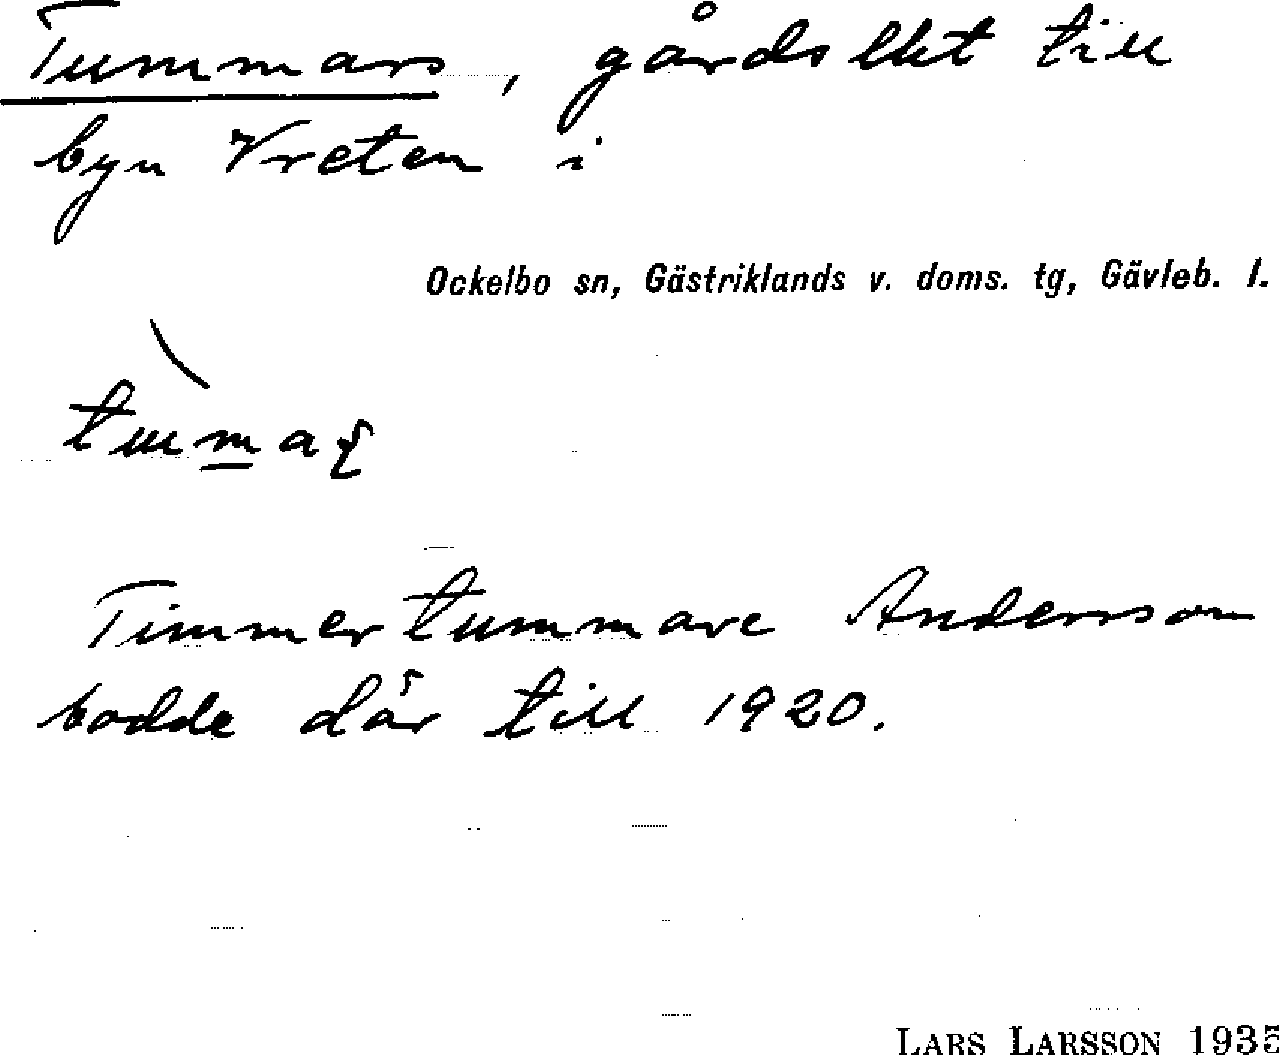 Tummars, gårdsllet till
byn Vreten i
Ockelbo sn, Gästriklands v. doms. tg, Gävleb. l.
Timmertummare Andersson
bodde där till 1920.
LARS LARSSON 1935